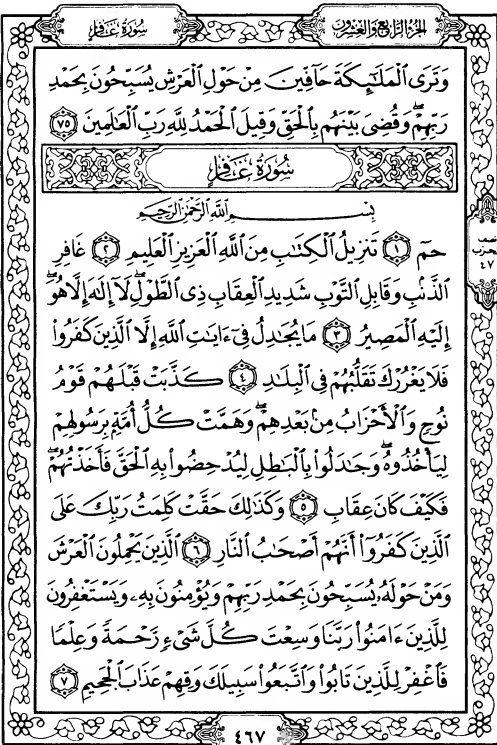 سُورَةُ غَافِرٍ
الجُزْءُ الرَّابِعُ وَالعِشْرُونَ
وَتَرَى ٱلْمَلَـٰٓئِكَةَ حَآفِّينَ مِنْ حَوْلِ ٱلْعَرْشِ يُسَبِّحُونَ بِحَمْدِ
رَبِّهِمْ ۖ وَقُضِىَ بَيْنَهُم بِٱلْحَقِّ وَقِيلَ ٱلْحَمْدُ لِلَّهِ رَبِّ ٱلْعَـٰلَمِينَ ٧٥
سُورَةُ غَافِرٍ
بِسْمِ ٱللَّهِ ٱلرَّحْمَـٰنِ ٱلرَّحِيمِ
حمٓ ١ تَنزِيلُ ٱلْكِتَـٰبِ مِنَ ٱللَّهِ ٱلْعَزِيزِ ٱلْعَلِيمِ ٢ غَافِرِ
ٱلذَّنۢبِ وَقَابِلِ ٱلتَّوْبِ شَدِيدِ ٱلْعِقَابِ ذِى ٱلطَّوْلِ ۖ لَآ إِلَـٰهَ إِلَّا هُوَ ۖ
إِلَيْهِ ٱلْمَصِيرُ ٣ مَا يُجَـٰدِلُ فِىٓ ءَايَـٰتِ ٱللَّهِ إِلَّا ٱلَّذِينَ كَفَرُوا۟
فَلَا يَغْرُرْكَ تَقَلُّبُهُمْ فِى ٱلْبِلَـٰدِ ٤ كَذَّبَتْ قَبْلَهُمْ قَوْمُ
نُوحٍ وَٱلْأَحْزَابُ مِنۢ بَعْدِهِمْ ۖ وَهَمَّتْ كُلُّ أُمَّةٍۭ بِرَسُولِهِمْ
لِيَأْخُذُوهُ ۖ وَجَـٰدَلُوا۟ بِٱلْبَـٰطِلِ لِيُدْحِضُوا۟ بِهِ ٱلْحَقَّ فَأَخَذْتُهُمْ ۖ
فَكَيْفَ كَانَ عِقَابِ ٥ وَكَذَٰلِكَ حَقَّتْ كَلِمَتُ رَبِّكَ عَلَى
ٱلَّذِينَ كَفَرُوٓا۟ أَنَّهُمْ أَصْحَـٰبُ ٱلنَّارِ ٦ ٱلَّذِينَ يَحْمِلُونَ ٱلْعَرْشَ
وَمَنْ حَوْلَهُۥ يُسَبِّحُونَ بِحَمْدِ رَبِّهِمْ وَيُؤْمِنُونَ بِهِۦ وَيَسْتَغْفِرُونَ
لِلَّذِينَ ءَامَنُوا۟ رَبَّنَا وَسِعْتَ كُلَّ شَىْءٍ رَّحْمَةً وَعِلْمًا
فَٱغْفِرْ لِلَّذِينَ تَابُوا۟ وَٱتَّبَعُوا۟ سَبِيلَكَ وَقِهِمْ عَذَابَ ٱلْجَحِيمِ ٧
نصف
الحزب
٤٧
٤٦٧